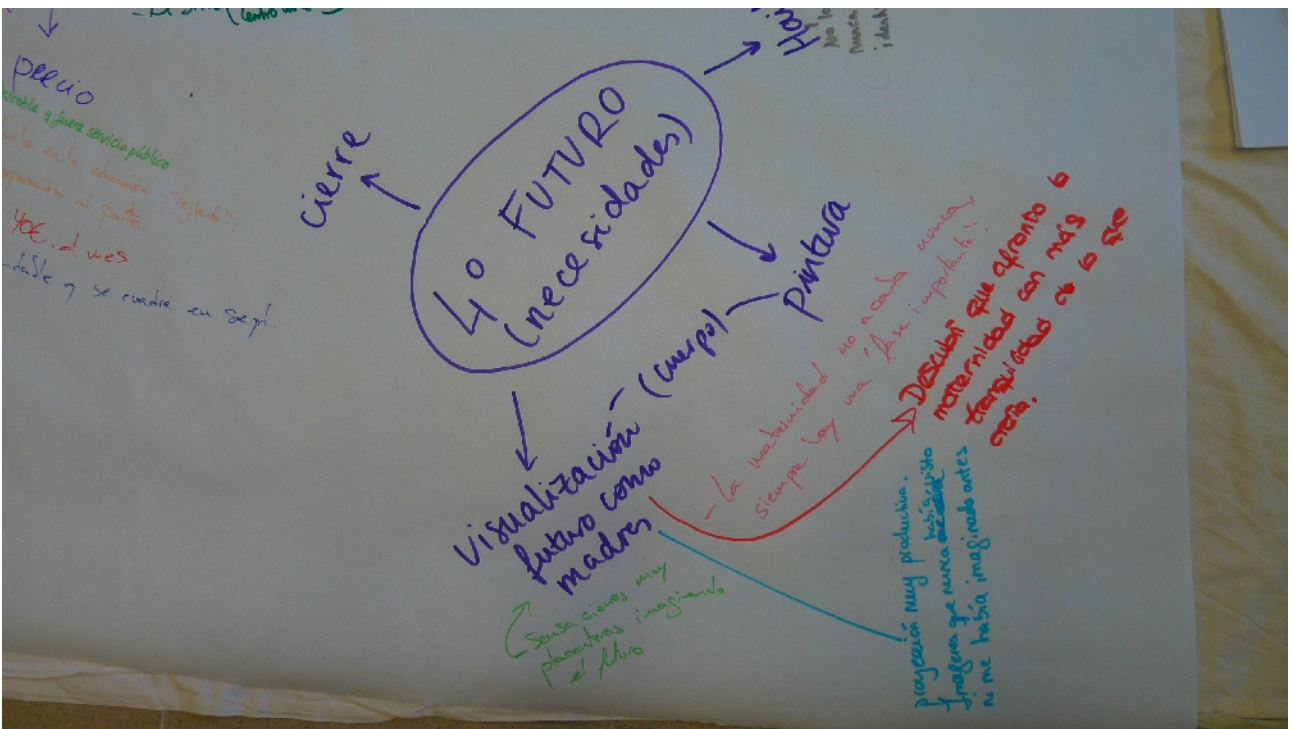 precio
q fuera servicio público
en la educación "reglada"
al parto.
40€ al mes
y se cuadre en sept.
cierre
4º FUTURO
(necesidades)
pintura
(cuerpo)
visualización
futuro como
madres
sensaciones muy
placenteras imaginando
el futuro
- La maternidad no acaba nunca,
siempre hay una "fase importante".
Descubrí que afronto la
maternidad con más
tranquilidad de lo que
creía.
proyección muy productiva.
Imágenes que nunca había visto
ni me había imaginado antes